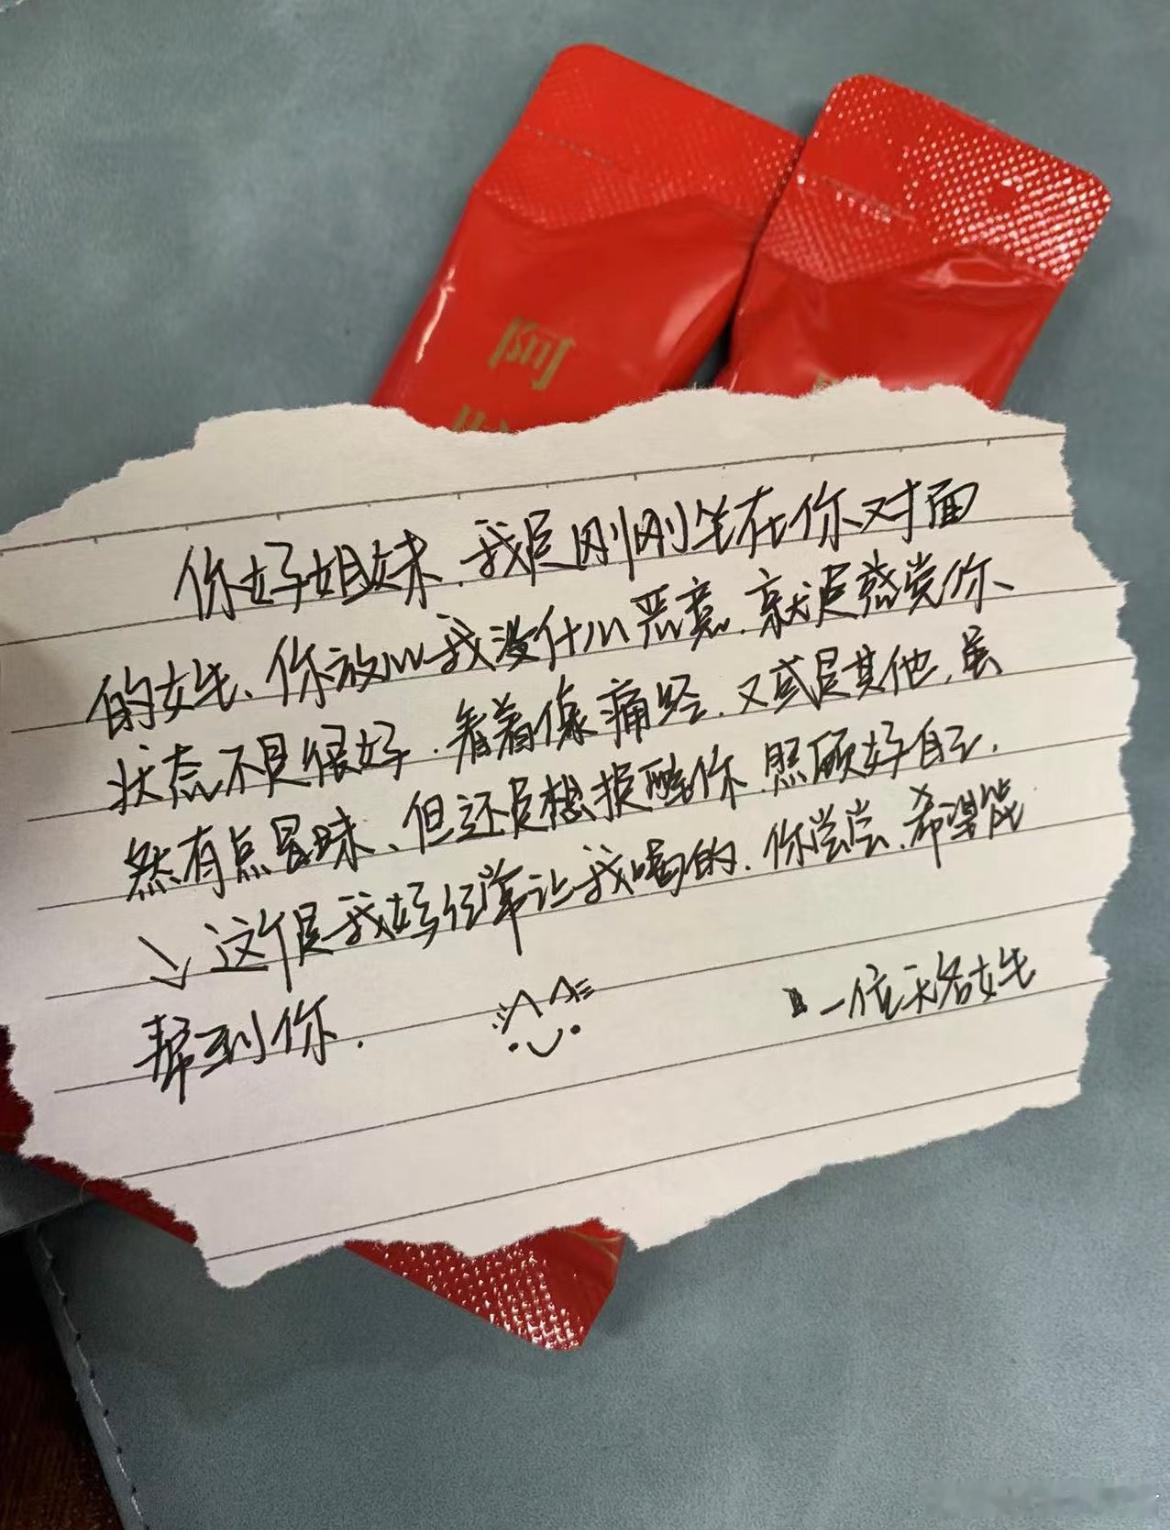 你好姐妹.我是刚刚坐在你对面
的女生、你放心我没什么恶意.就是感觉你
状态不是很好.看着像痛经.又或是其他.虽
然有点冒昧、但还是想提醒你.照顾好自己.
↘这个是我妈经常让我喝的.你尝尝、希望能
帮到你.
一位无名女生